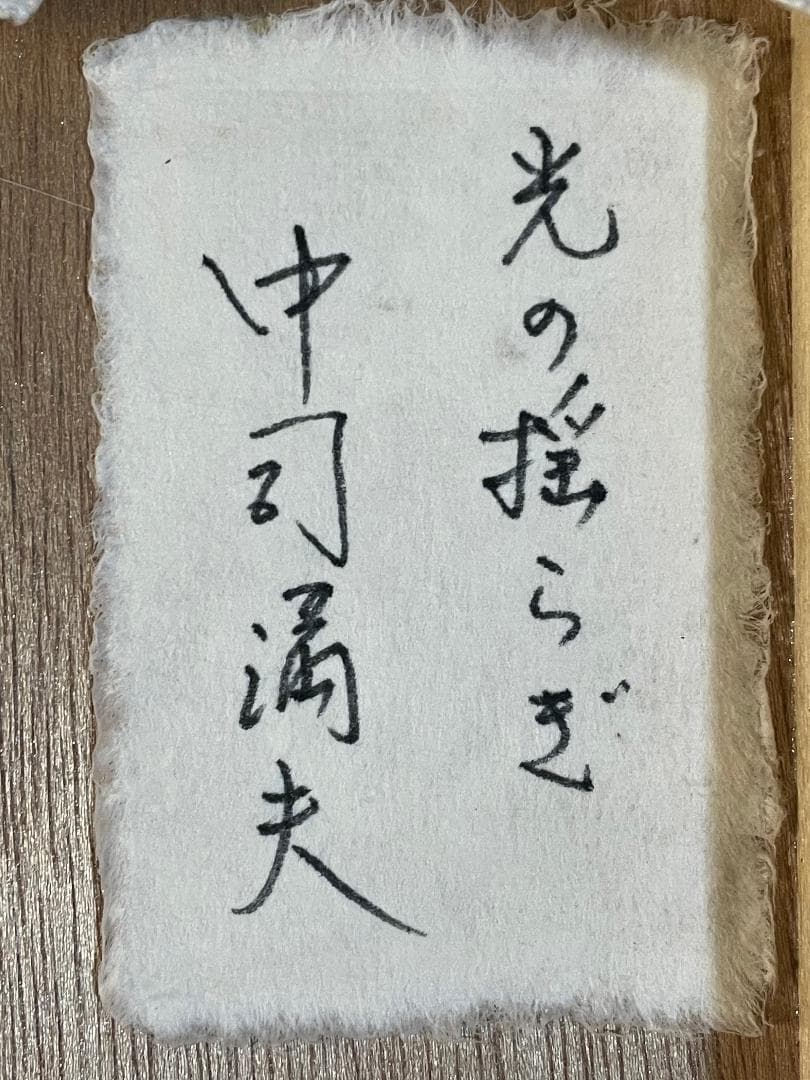 光の揺らぎ
中司満夫